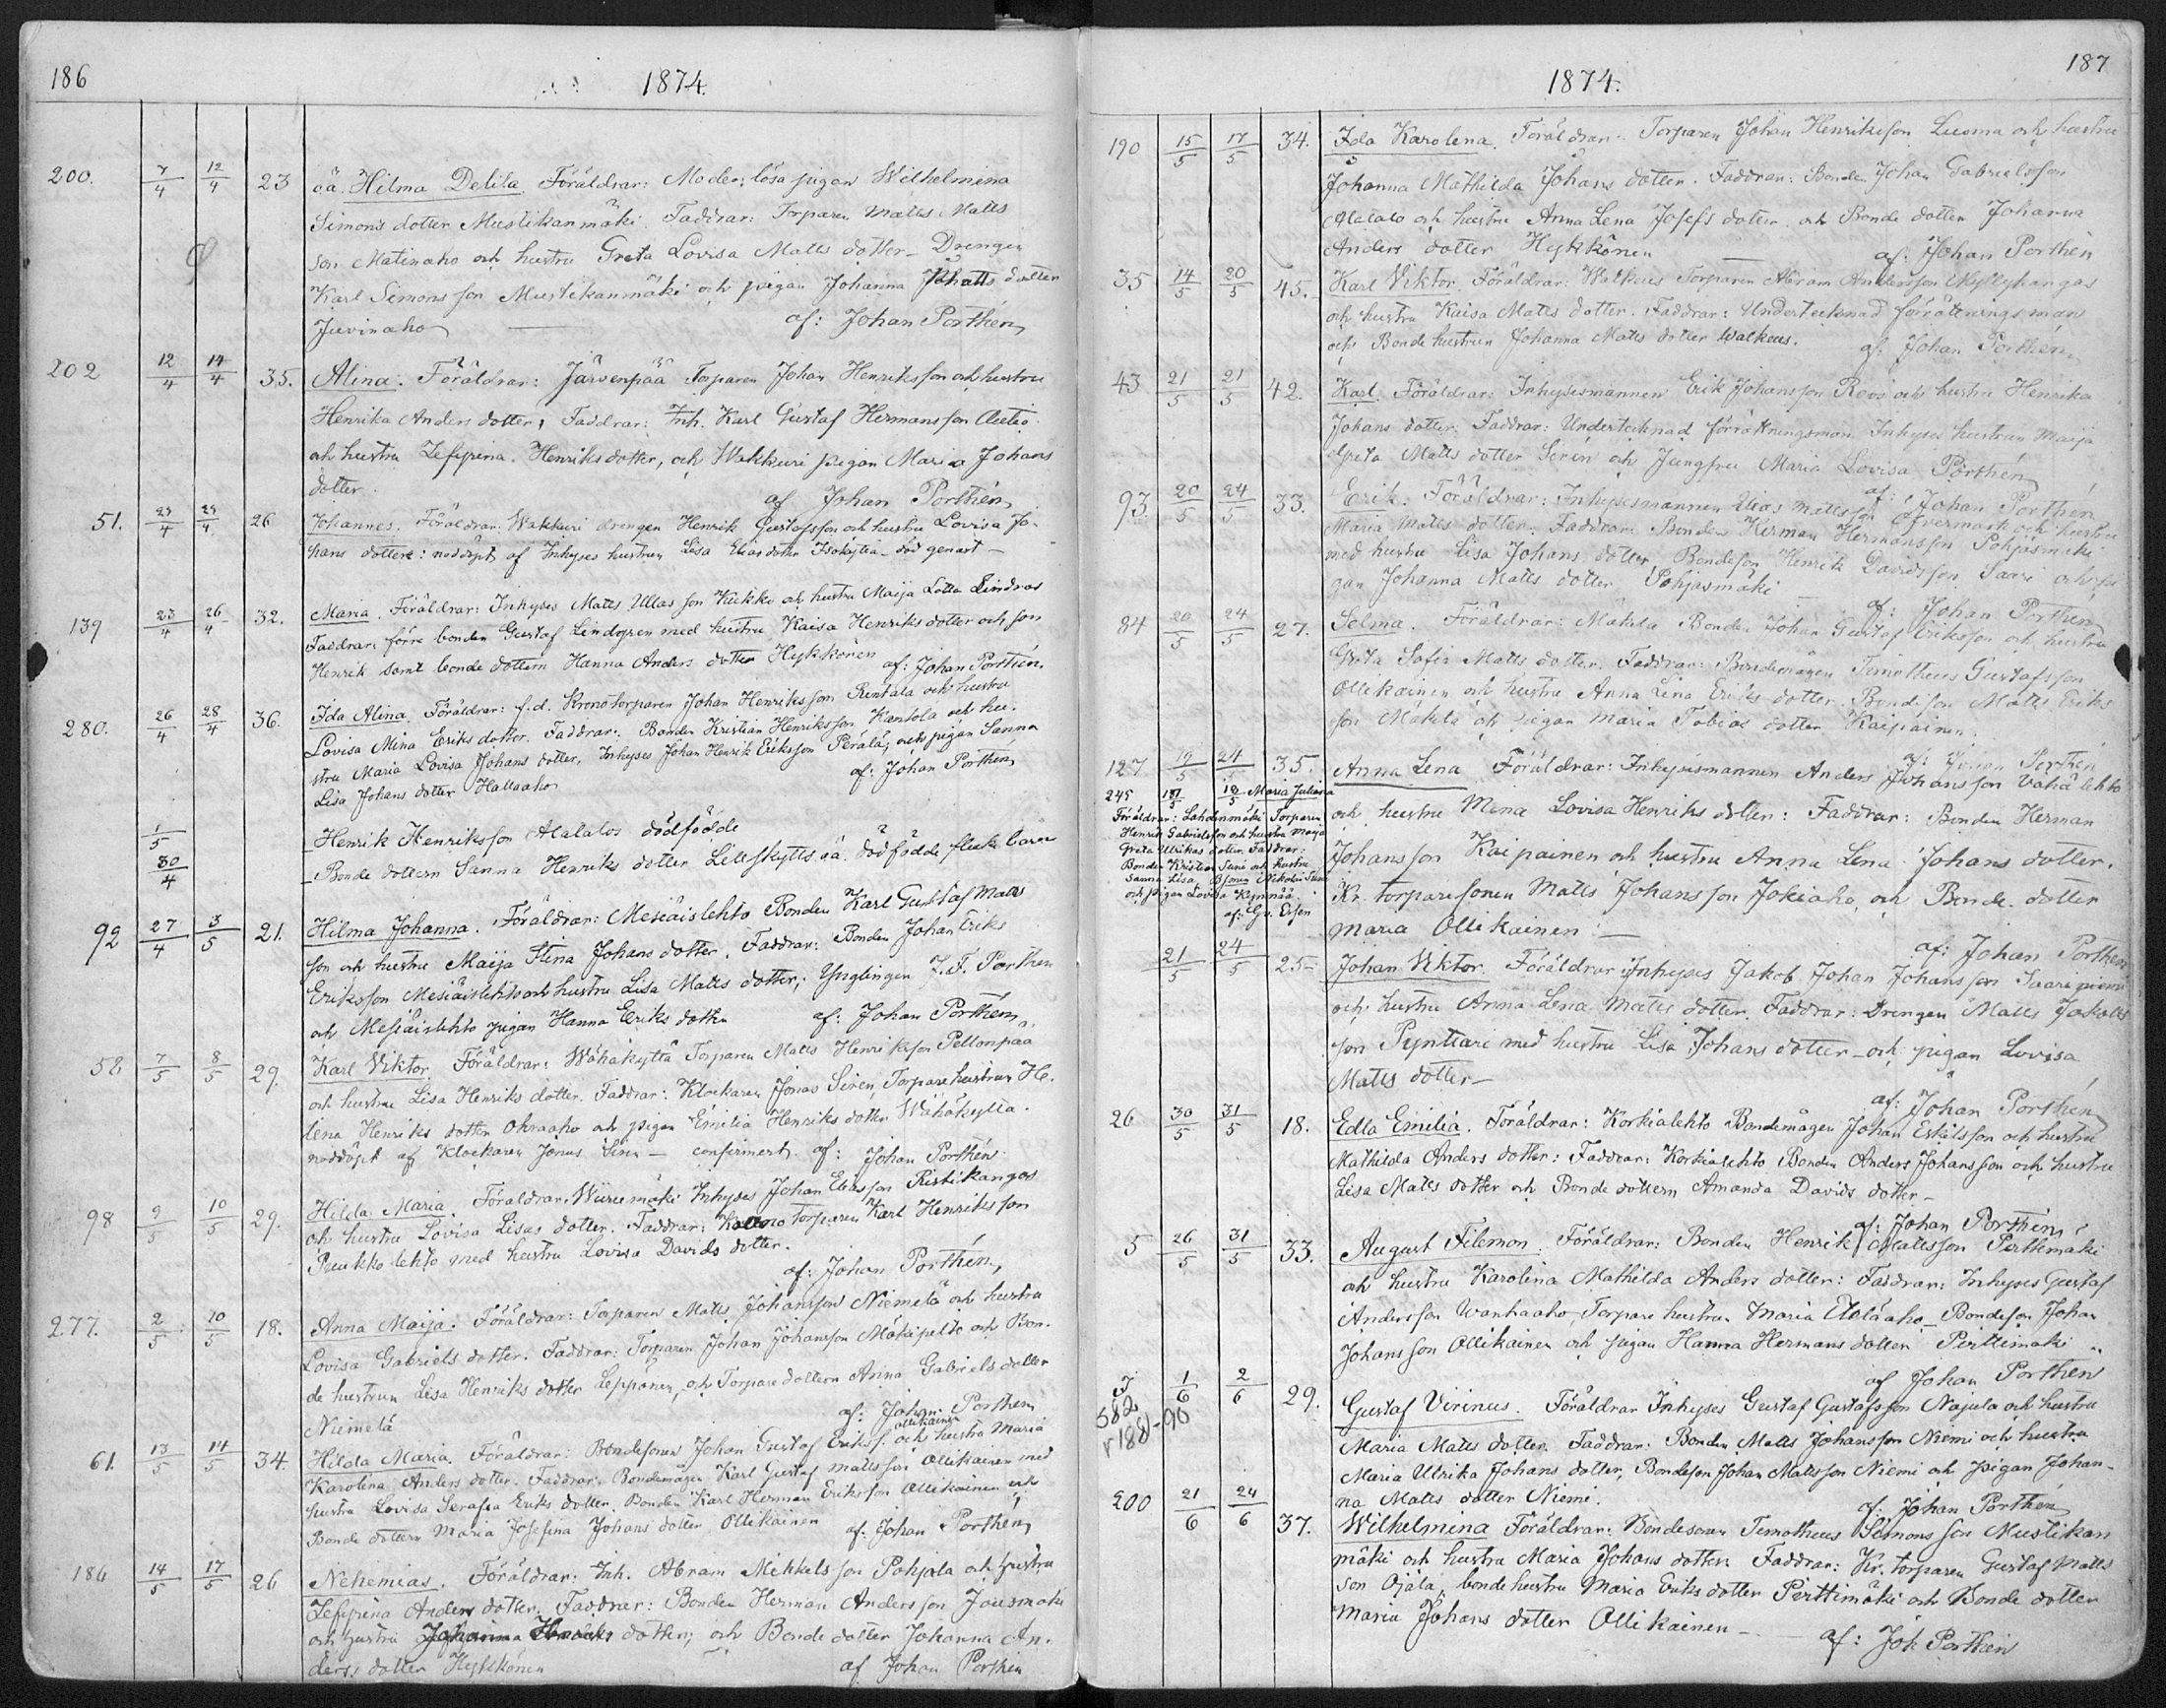 186
1874.
200. 7/4 12/4 23 oä. Hilma Delila. Föräldrar: Moder; lösa pigan Wilhelmina
Simons dotter Mustikanmäki. Faddrar: Torparen Matts Matts
son Matinaho och hustru Greta Lovisa Matts dotter - Drengen
Karl Simonsson Mustikanmäki och pigan Johanna Matts dotter
Juvinaho — af: Johan Porthén
202 12/4 14/4 35. Alina. Föräldrar: Järvenpää Torparen Johan Henriksson och hustru
Henrika Anders dotter, Faddrar: Inh. Karl Gustaf Hermansson Autio
och hustru Zefyrina Henriks dotter, och Wakkuri pigan Maria Johans
dotter. af Johan Porthén
51. 24/4 26 Johannes. Föräldrar: Wakkuri drengen Henrik Gustafsson och hustru Lovisa Jo-
hans dotter: noddöpt af Inhyses hustrun Lisa Elias dotter Isokytia - död genast -
139 23/4 26/4 32. Maria. Föräldrar: Inhyses Matts Ullas son Kukko och hustru Maija Lotta Lindros
Faddrar: förre bonden Gustaf Lindgren med hustru Kaisa Henriks dotter och son
Henrik samt bonde dottern Hanna Anders dotter Hykkönen af: Johan Porthén
280. 26/4 28/4 36. Ida Alina. Föräldrar: f.d. Kronotorparen Johan Henriksson Rintala och hustru
Lovisa Mina Eriks dotter. Faddrar: Bonden Kristian Henriksson Kantola och hu-
stru Maria Lovisa Johans dotter, Inhyses Johan Henrik Eriksson Perälä, och pigan Sanna
Lisa Johans dotter Hallaaho af: Johan Porthén
1/5 Henrik Henriksson Alatalos dödfödde
30/4 Bonde dottern Sanna Henriks dotter Lillskytts oä. dödfödde flicke barn
92 27/4 3/5 21. Hilma Johanna. Föräldrar: Mesiäislehto Bonden Karl Gustaf Matts
son och hustru Maija Stina Johans dotter. Faddrar: Bonden Johan Eriks
Eriksson Mesiäislehto och hustru Lisa Matts dotter; Ynglingen J. F. Porthén
och Mesiäislehto pigan Hanna Eriks dotter af: Johan Porthén
58 7/5 8/5 29. Karl Viktor. Föräldrar: Wähäkyttä Torparen Matts Henriksson Peltonpää
och hustru Lisa Henriks dotter. Faddrar: Klockaren Jonas Siren, Torpare hustrun He-
lena Henriks dotter Ohraaho och pigan Emilia Henriks dotter Wähäkytta.
noddöpt af Klockaren Jonas Siren - confirmert af: Johan Porthén
98 9/5 10/5 29. Hilda Maria. Föräldrar: Wiirumäki Inhyses Johan Eliasson Ristikangas
och hustru Lovisa Lisas dotter. Faddrar: Krono Torparen Karl Henriksson
Puukko lehto med hustru Lovisa Davids dotter.
af: Johan Porthén,
277. 2/5 10/5 18. Anna Maija. Föräldrar: Torparen Matts Johansson Niemelä och hustru
Lovisa Gabriels dotter. Faddrar: Torparen Johan Johansson Mäkipelto och Bon-
de hustrun Lisa Henriks dotter Lepponen, och Torpare dottern Anna Gabriels dotter
Niemelä af: Johan Porthén
61. 13/5 14/5 34. Hilda Maria. Föräldrar: Bondesonen Johan Gustaf Eriksf. Ollikainen och hustru Maria
Karolina Anders dotter. Faddrar: Bondemågen Karl Gustaf Mattsson Ollikainen med
hustru Lovisa Serafia Eriks dotter. Bonden Karl Herman Eriksson Ollikainen och
Bonde dottern Maria Josefina Johans dotter Ollikainen af: Johan Porthén
186 14/5 17/5 26 Nehemias. Föräldrar: Inh. Abram Mikkelsson Pohjola och hustru
Zefyrina Anders dotter. Faddrar: Bonden Herman Andersson Jousmäki
och hustru Johanna Henriks dotter; och Bonde dotter Johanna An-
ders dotter Hykkönen af Johan Porthén
187
1874.
190 15/5 17/5 34. Ida Karolena. Föräldrar: Torparen Johan Henriksson Luoma och hustru
Johanna Mathilda Johans dotter. Faddrar: Bonden Johan Gabrielsson
Alatalo och hustru Anna Lena Josefs dotter och Bonde dotter Johanna
Anders dotter Hykkönen — af: Johan Porthén
35 14/5 20/5 45. Karl Viktor. Föräldrar: Walkeus Torparen Abram Andersson Myllykangas
och hustru Kaisa Matts dotter. Faddrar: Undertecknad förrättningsman
och Bonde hustrun Johanna Matts dotter Walkeus. af: Johan Porthén
43 21/5 21/5 42. Karl. Föräldrar: Inhysesmannen Erik Johansson Revo och hustru Henrika
Johans dotter. Faddrar: Undertecknad förrättningsman Inhyses hustrun Maija
Greta Matts dotter Siren och Jungfru Maria Lovisa Porthén
af: Johan Porthén
93. 20/5 24/5 33. Erik. Föräldrar: Inhysesmannen Elias Mattsson Öfvermark och hustru
Maria Matts dotter. Faddrar: Bonden Herman Hermansson Pohjasmäki
med hustru Lisa Johans dotter Bondeson Henrik Davidsson Saari och pi-
gan Johanna Matts dotter Pohjasmäki —
af: Johan Porthén
84 20/5 24/5 27. Selma. Föräldrar: Mäkelä Bonden Johan Gustaf Eriksson och hustru
Greta Sofia Matts dotter. Faddrar: Bondemågen Timotheus Gustafsson
Ollikainen och hustru Anna Lena Eriks dotter. Bondeson Matts Eriks
son Mäkelä och pigan Maria Tobias dotter Kaipainen.
af: Johan Porthén
127 19/5 24/5 35. Anna Lena Föräldrar: Inhysesmannen Anders Johansson Vähälehto
och hustru Mina Lovisa Henriks dotter: Faddrar: Bonden Herman
Johansson Kaipainen och hustru Anna Lena Johans dotter.
Kr. torparesonen Matts Johansson Jokiaho, och Bonde dotter
Maria Ollikainen —
af: Johan Porthén
245 17/5 18/5 Maria Juliana
Föräldrar: Lähdenmäki Torparen
Henrik Gabrielsson och hustru Maija
Greta Ulrikas dotter Faddrar:
Bonden Kristian Sani och hustru
Sanna Lisa, Bsonen Nikolai Sani
och pigan Lovisa
af: G. Ersen
21/5 24/5 25 Johan Viktor. Föräldrar: Inhyses Jakob Johan Johansson Saaripuomi
och hustru Anna Lena Matts dotter. Faddrar: Drengen Matts Jakobs
son Pynttäri med hustru Lisa Johans dotter - och pigan Lovisa
Matts dotter -
af: Johan Porthén
26 30/5 31/5 18. Edla Emilia. Föräldrar: Korkialehto Bondemågen Johan Eskilsson och hustru
Mathilda Anders dotter: Faddrar: Korkialehto Bonden Anders Johansson och hustru
Lisa Matts dotter och Bonde dottern Amanda Davids dotter -
af: Johan Porthén
5 26/5 31/5 33. August Filemon. Föräldrar: Bonden Henrik Mattsson Perttimäki
och hustru Karolina Mathilda Anders dotter: Faddrar: Inhyses Gustaf
Andersson Wanhaaho, Torpare hustrun Maria Alaaho - Bondeson Johan
Johansson Ollikainen och pigan Hanna Hermans dotter Perttimäki
af Johan Porthén
582 r 1881-90 1/6 2/6 29. Gustaf Virinus. Föräldrar Inhyses Gustaf Gustafsson Najula och hustru
Maria Matts dotter. Faddrar: Bonden Matts Johansson Niemi och hustru
Maria Ulrika Johans dotter, Bondeson Johan Mattsson Niemi och pigan Johan-
na Matts dotter Niemi. af: Johan Porthén
200 21/6 24/6 37. Wilhelmina Föräldrar: Bondesonen Timotheus Simonsson Mustikan
mäki och hustru Maria Johans dotter. Faddrar: Kr. torparen Gustaf Matts
son Ojala, bondehustru Maria Eriks dotter Perttimäki och Bonde dotter
Maria Johans dotter Ollikainen - — af: Joh Porthén